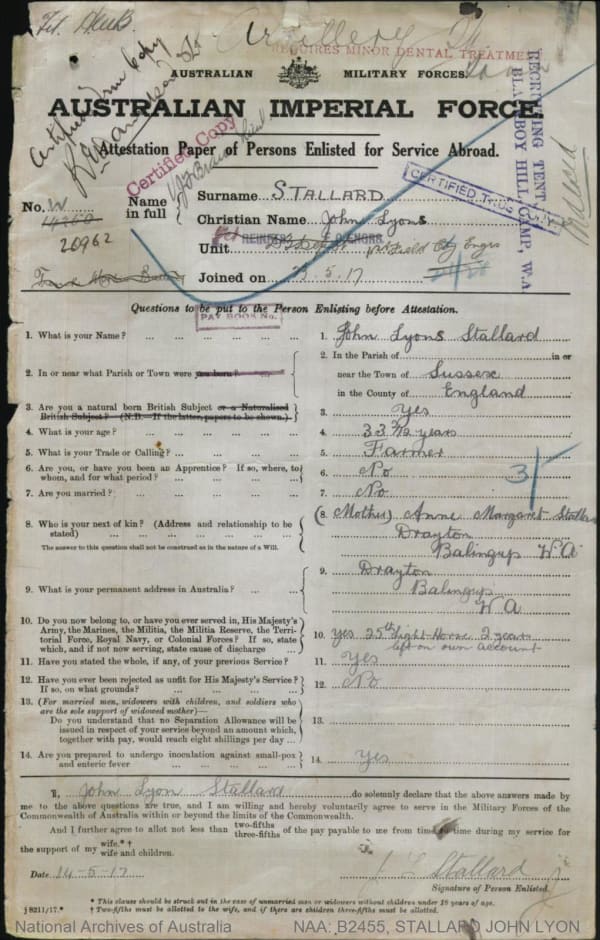 Artillery
REQUIRES MINOR DENTAL TREATMENT
AUSTRALIAN MILITARY FORCES.
AUSTRALIAN IMPERIAL FORCE.
Certified True Copy
Attestation Paper of Persons Enlisted for Service Abroad.
Certified Copy
CERTIFIED TRUE
RECRUITING TENT
BLACKBOY HILL CAMP, W.A.
No. W
14260
20962
Name in full
Surname STALLARD
Christian Name John Lyons
Unit
Joined on 23.5.17
Questions to be put to the Person Enlisting before Attestation.
PAY BOOK No.
1. What is your Name? ... 1. John Lyons Stallard
2. In or near what Parish or Town were you born? ... 2. In the Parish of in or
near the Town of Sussex
in the County of England
3. Are you a natural born British Subject or a Naturalised
British Subject? (N.B.—If the latter, papers to be shown.) 3. Yes
4. What is your age? ... 4. 33 years
5. What is your Trade or Calling? ... 5. Farmer
6. Are you, or have you been an Apprentice? If so, where, to
whom, and for what period? ... 6. No
7. Are you married? ... 7. No
8. Who is your next of kin? (Address and relationship to be
stated) ... 8. (Mother) Anne Margaret Stallard
Drayton
Balingup W.A
The answer to this question shall not be construed as in the nature of a Will.
9. What is your permanent address in Australia? ... 9. Drayton
Balingup
W A
10. Do you now belong to, or have you ever served in, His Majesty's
Army, the Marines, the Militia, the Militia Reserve, the Terri-
torial Force, Royal Navy, or Colonial Forces? If so, state
which, and if not now serving, state cause of discharge ... 10. Yes 25th Light Horse 2 years
left on own account
11. Have you stated the whole, if any, of your previous Service? 11. Yes
12. Have you ever been rejected as unfit for His Majesty's Service?
If so, on what grounds? ... 12. No
13. (For married men, widowers with children, and soldiers who
are the sole support of widowed mother)—
Do you understand that no Separation Allowance will be
issued in respect of your service beyond an amount which,
together with pay, would reach eight shillings per day ... 13.
14. Are you prepared to undergo inoculation against small-pox
and enteric fever ... 14. Yes
I, John Lyon Stallard do solemnly declare that the above answers made by
me to the above questions are true, and I am willing and hereby voluntarily agree to serve in the Military Forces of the
Commonwealth of Australia within or beyond the limits of the Commonwealth.
And I further agree to allot not less than two-fifths three-fifths of the pay payable to me from time to time during my service for
the support of my wife.*† wife and children.
Date 14-5-17
J L Stallard
Signature of Person Enlisted.
* This clause should be struck out in the case of unmarried men or widowers without children under 18 years of age.
j 8211/17.* † Two-fifths must be allotted to the wife, and if there are children three-fifths must be allotted.
National Archives of Australia NAA: B2455, STALLARD JOHN LYON